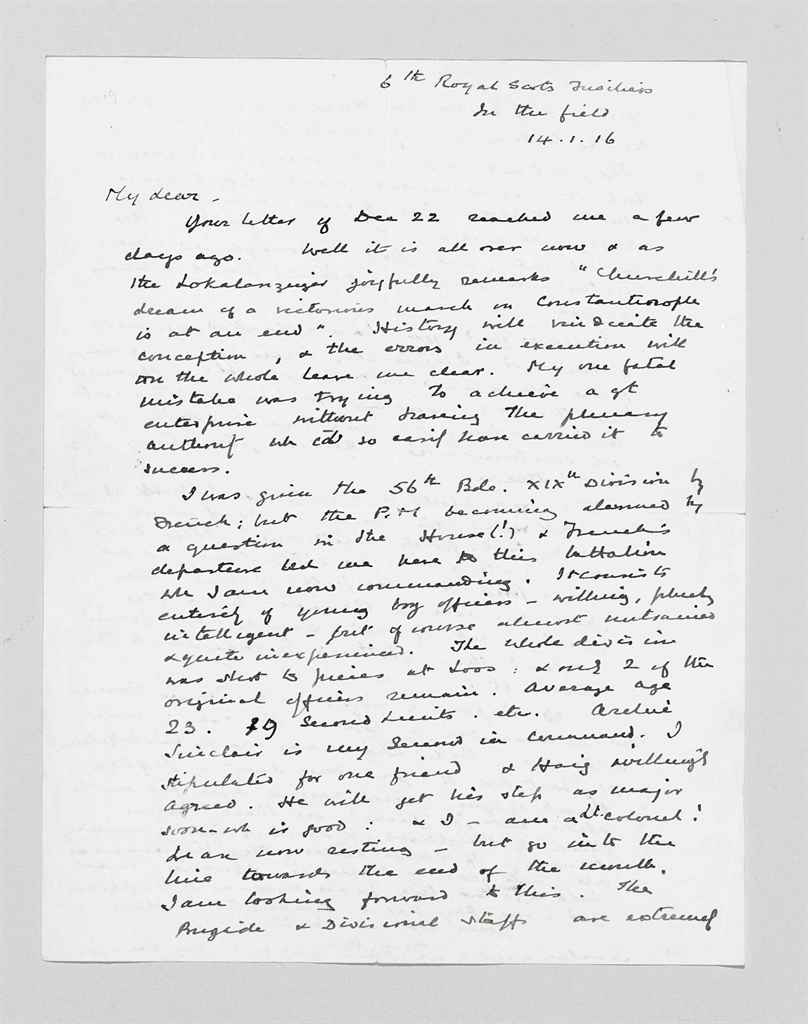 6th Royal Scots Fusiliers
In the field
14.1.16
My dear -
Your letter of Dec 22 reached me a few
days ago. Well it is all over now & as
the Lokalanzeiger joyfully remarks "Churchill's
dream of a victorious march on Constantinople
is at an end". History will vindicate the
conception, & the errors in execution will
on the whole leave me clear. My one fatal
mistake was trying to achieve a gt
enterprise without having the plenary
authority wh cd so easily have carried it to
success.
I was given the 56th Bde. XIXth Division by
French; but the P.M becoming alarmed by
a question in the House(!) & French's
departure led me here to this battalion
wh I am now commanding. It consists
entirely of young boy officers - willing, plucky
intelligent - but of course almost untrained
& quite inexperienced. The whole division
was shot to pieces at Loos: & only 2 of the
original officers remain. Average age
23. 19 Second Lieuts. etc. Archie
Sinclair is my Second in Command. I
stipulated for one friend & Haig willingly
agreed. He will get his step as major
soon - wh is good: & I - am a Lt colonel!
We are now resting - but go into the
line towards the end of the month.
I am looking forward to this. The
Brigade & Divisional staffs are extremely